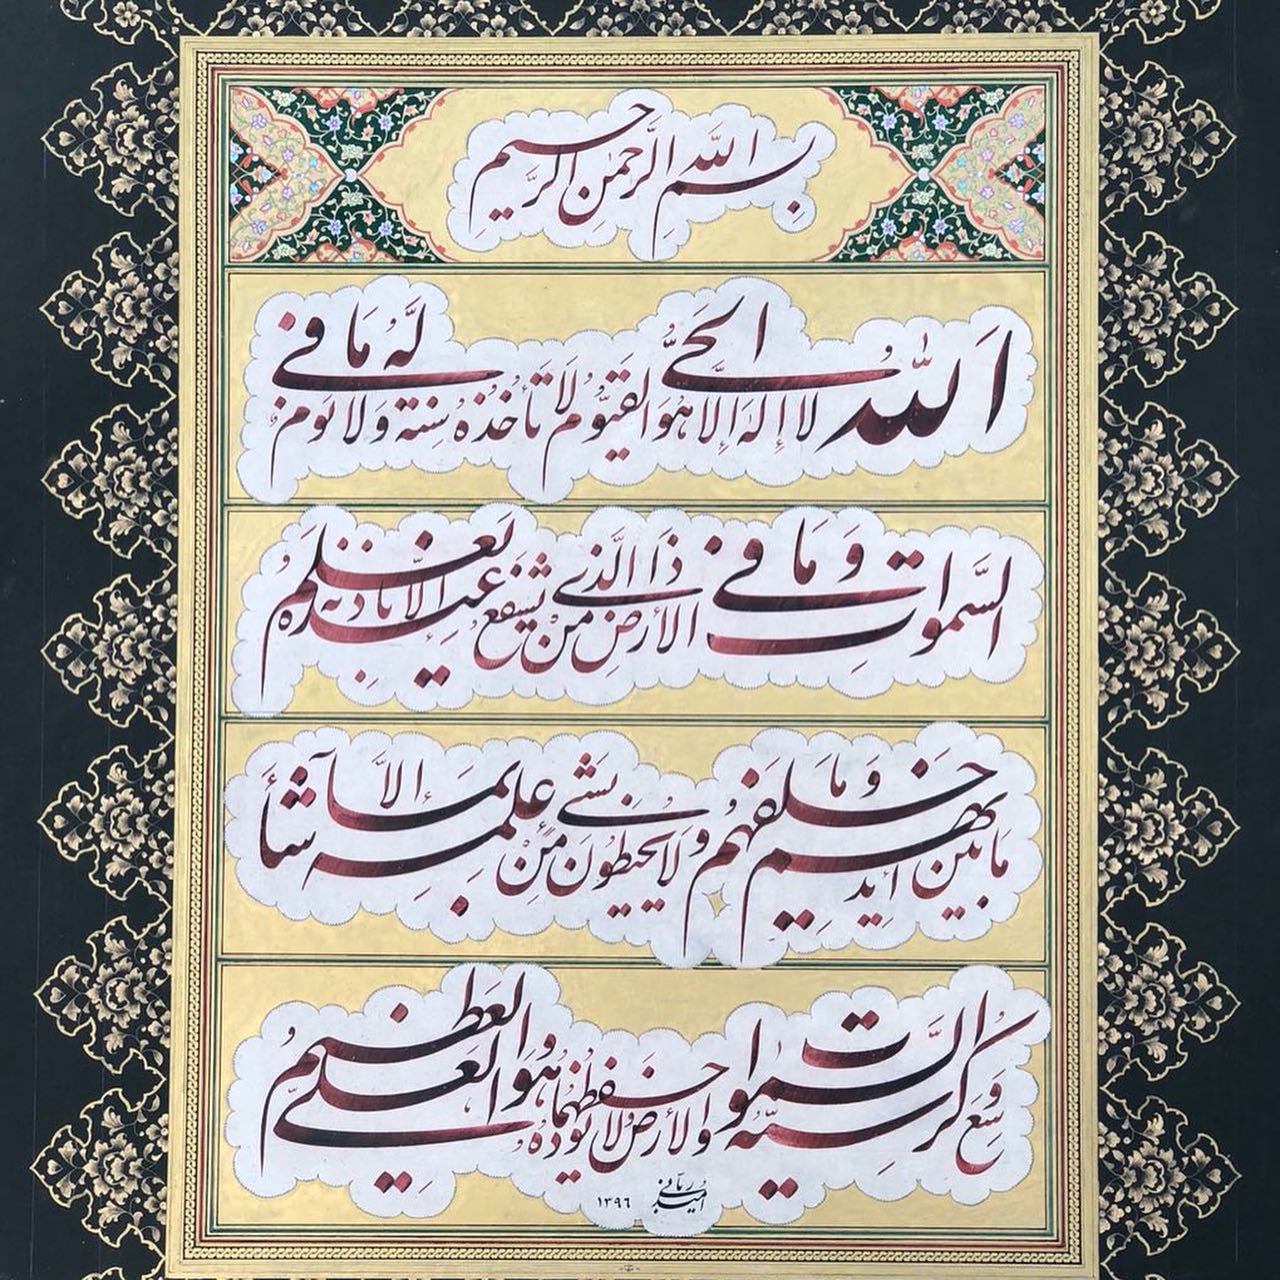 بِسْمِ اللهِ الرَّحْمٰنِ الرَّحيمِ
اَللهُ لا إِلهَ إِلاَّ هُوَ الحَيُّ القَيُّومُ لا تَأْخُذُهُ سِنَةٌ وَلا نَومٌ لَهُ مَا فِي
السَّمواتِ وَمَا فِي الأَرضِ مَن ذَا الَّذي يَشفَعُ عِندَهُ إِلاَّ بِإِذنِهِ يَعلَمُ
مَا بَينَ أَيديهِم وَمَا خَلفَهُم وَلا يُحيطُونَ بِشَيءٍ مِن عِلمِهِ إِلاَّ بِمَا شَآءَ
وَسِعَ كُرسِيُّهُ السَّمواتِ وَالأَرضَ وَلا يَؤُدُهُ حِفظُهُمَا وَهُوَ العَلِيُّ العَظيمُ
امید ربانی ١٣٩٦